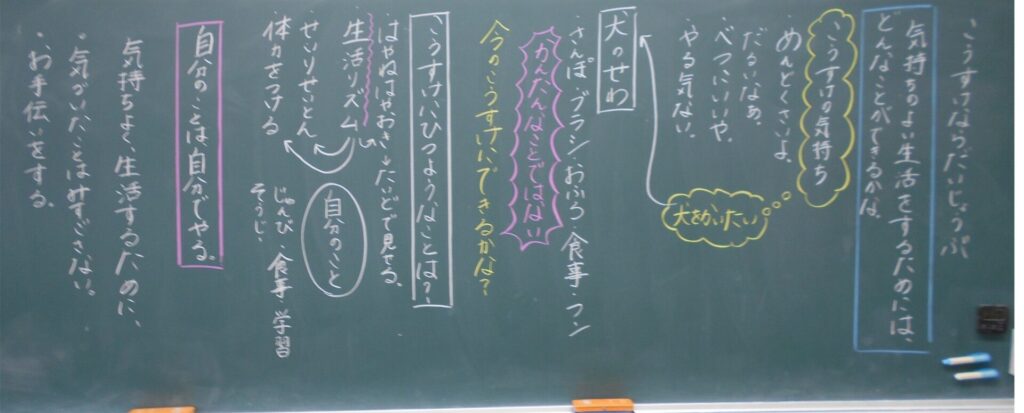 こうすけならだいじょうぶ
気持ちのよい生活をするためには、
どんなことができるかな。
こうすけの気持ち
・めんどくさいよ。
・だるいなあ。
・べつにいいや。
・やる気ない。
犬をかいたい
犬のせわ
さんぽ・ブラシ・おふろ・食事・フン
かんたんなことではない
今のこうすけにできるかな？
こうすけにひつようなことは？
はやねはやおき→たいどで見せる。
・生活リズム
・せいりせいとん
・体力をつける
自分のこと
じゅんび・食事・学習
そうじ・
自分のことは自分でやる。
気持ちよく、生活するために、
・気がついたことはみすごさない。
・お手伝いをする。